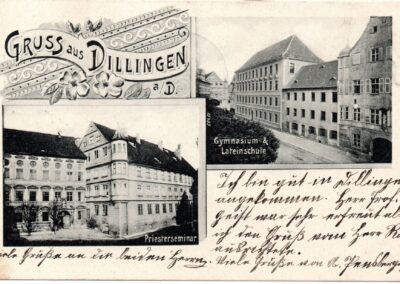 GRUSS aus DILLINGEN
a/D.
Gymnasium- &
Lateinschule
Priesterseminar
Ich bin gut in Dillingen
angekommen. Herr Prof.
Geist war sehr erfreut als
ich den Gruß vom Herr
ausrichtete.
viele Grüße an die beiden Herrn. Viele Grüße von